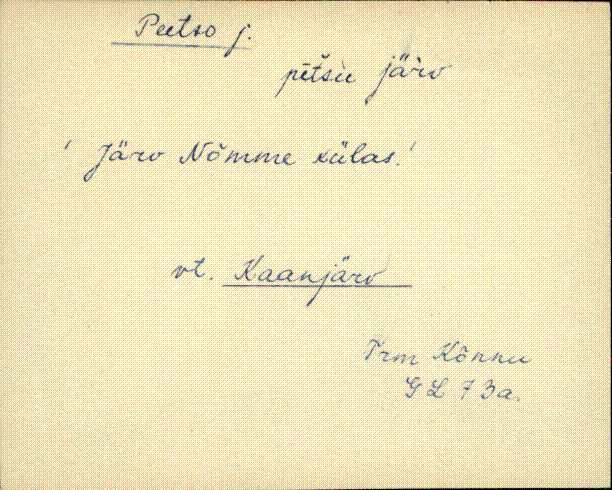 Peetso j.
pētšu järv
' Järv Nõmme külas.'
vt. Kaanjärv
Trm Kõnnu
GL 73a.